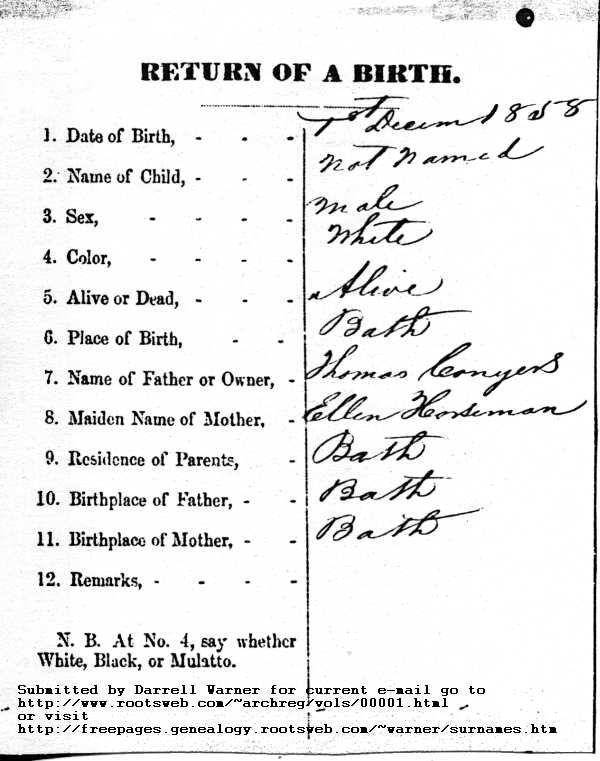 RETURN OF A BIRTH.
1. Date of Birth, - - - 1st Decem 1858
2. Name of Child, - - - Not Named
3. Sex, - - - - Male
4. Color, - - - - White
5. Alive or Dead, - - - Alive
6. Place of Birth, - - Bath
7. Name of Father or Owner, - Thomas Conyers
8. Maiden Name of Mother, - Ellen Horseman
9. Residence of Parents, - Bath
10. Birthplace of Father, - - Bath
11. Birthplace of Mother, - - Bath
12. Remarks, - - - -
N. B. At No. 4, say whether
White, Black, or Mulatto.
Submitted by Darrell Warner for current e-mail go to
http://www.rootsweb.com/~archreg/vols/00001.html
or visit
http://freepages.genealogy.rootsweb.com/~warner/surnames.htm